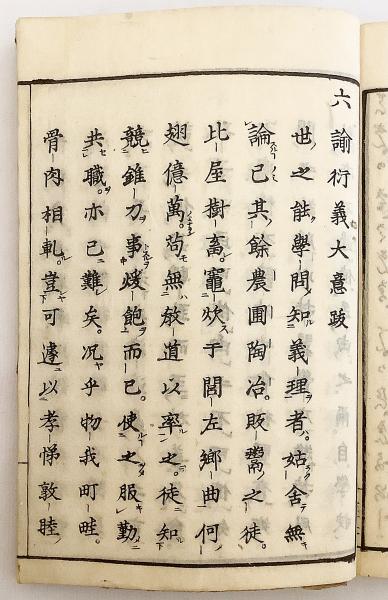 六諭衍義大意跋
世之能學問知義理者。姑舍無
論已其餘農圃陶冶。販鬻之徒。
比屋樹畜。竈炊于閭左鄉曲何
翅億萬。苟無敎道以率之。徒知
競錐刀事煖飽而已。使之服勤
共職。亦已難矣。况乎物我町畦。
骨肉相軋。豈可遽以孝悌敦睦